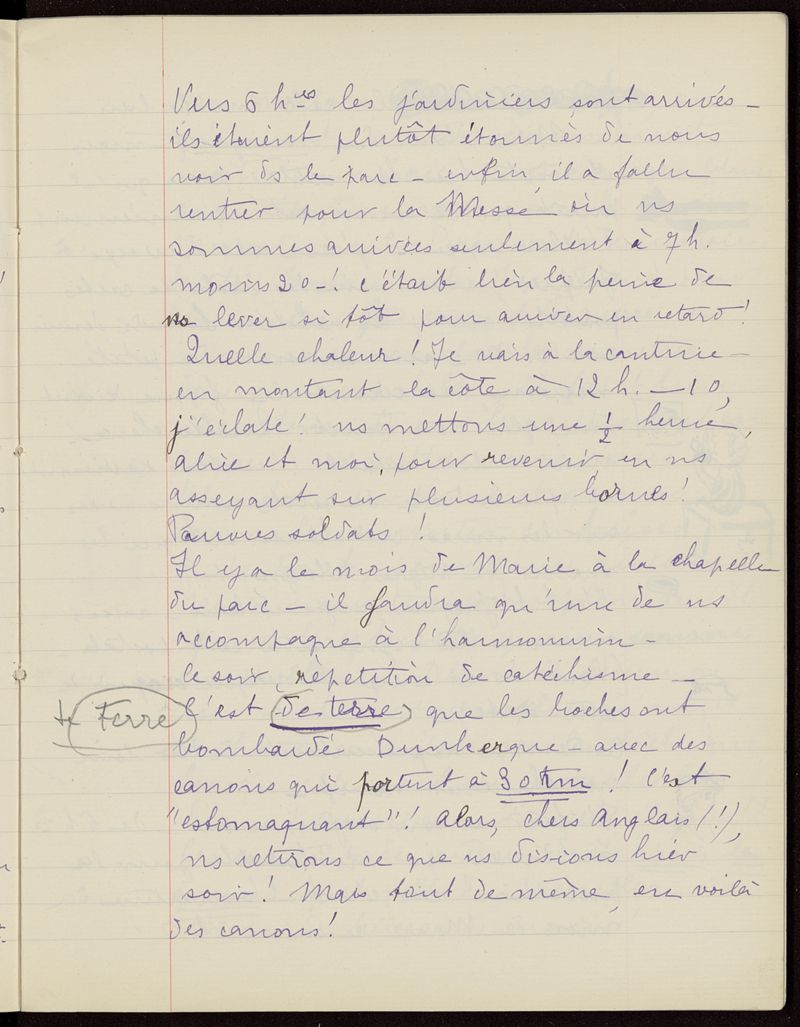 Vers 6 hres les jardiniers sont arrivés –
ils étaient plutôt étonnés de nous
voir ds le parc – enfin, il a fallu
rentrer pour la Messe où ns
sommes arrivées seulement à 7 h.
moins 20 –! c'était bien la peine de
ns lever si tôt pour arriver en retard !
Quelle chaleur ! Je vais à la cantine –
en montant la côte à 12 h. – 10,
j'éclate ! ns mettons une 1/2 heure,
alice et moi, pour revenir, en ns
asseyant sur plusieurs bornes !
Pauvres soldats !
Il y a le mois de Marie à la chapelle
du parc – il faudra qu'une de ns
accompagne à l'harmonium –
le soir, répétition de catéchisme –
Terre
C'est de terre que les boches ont
bombardé Dunkerque – avec des
canons qui portent à 30 km ! C'est
"estomaquant" ! Alors, chers Anglais (!),
ns retirons ce que ns disions hier
soir ! Mais tout de même, en voilà
des canons !